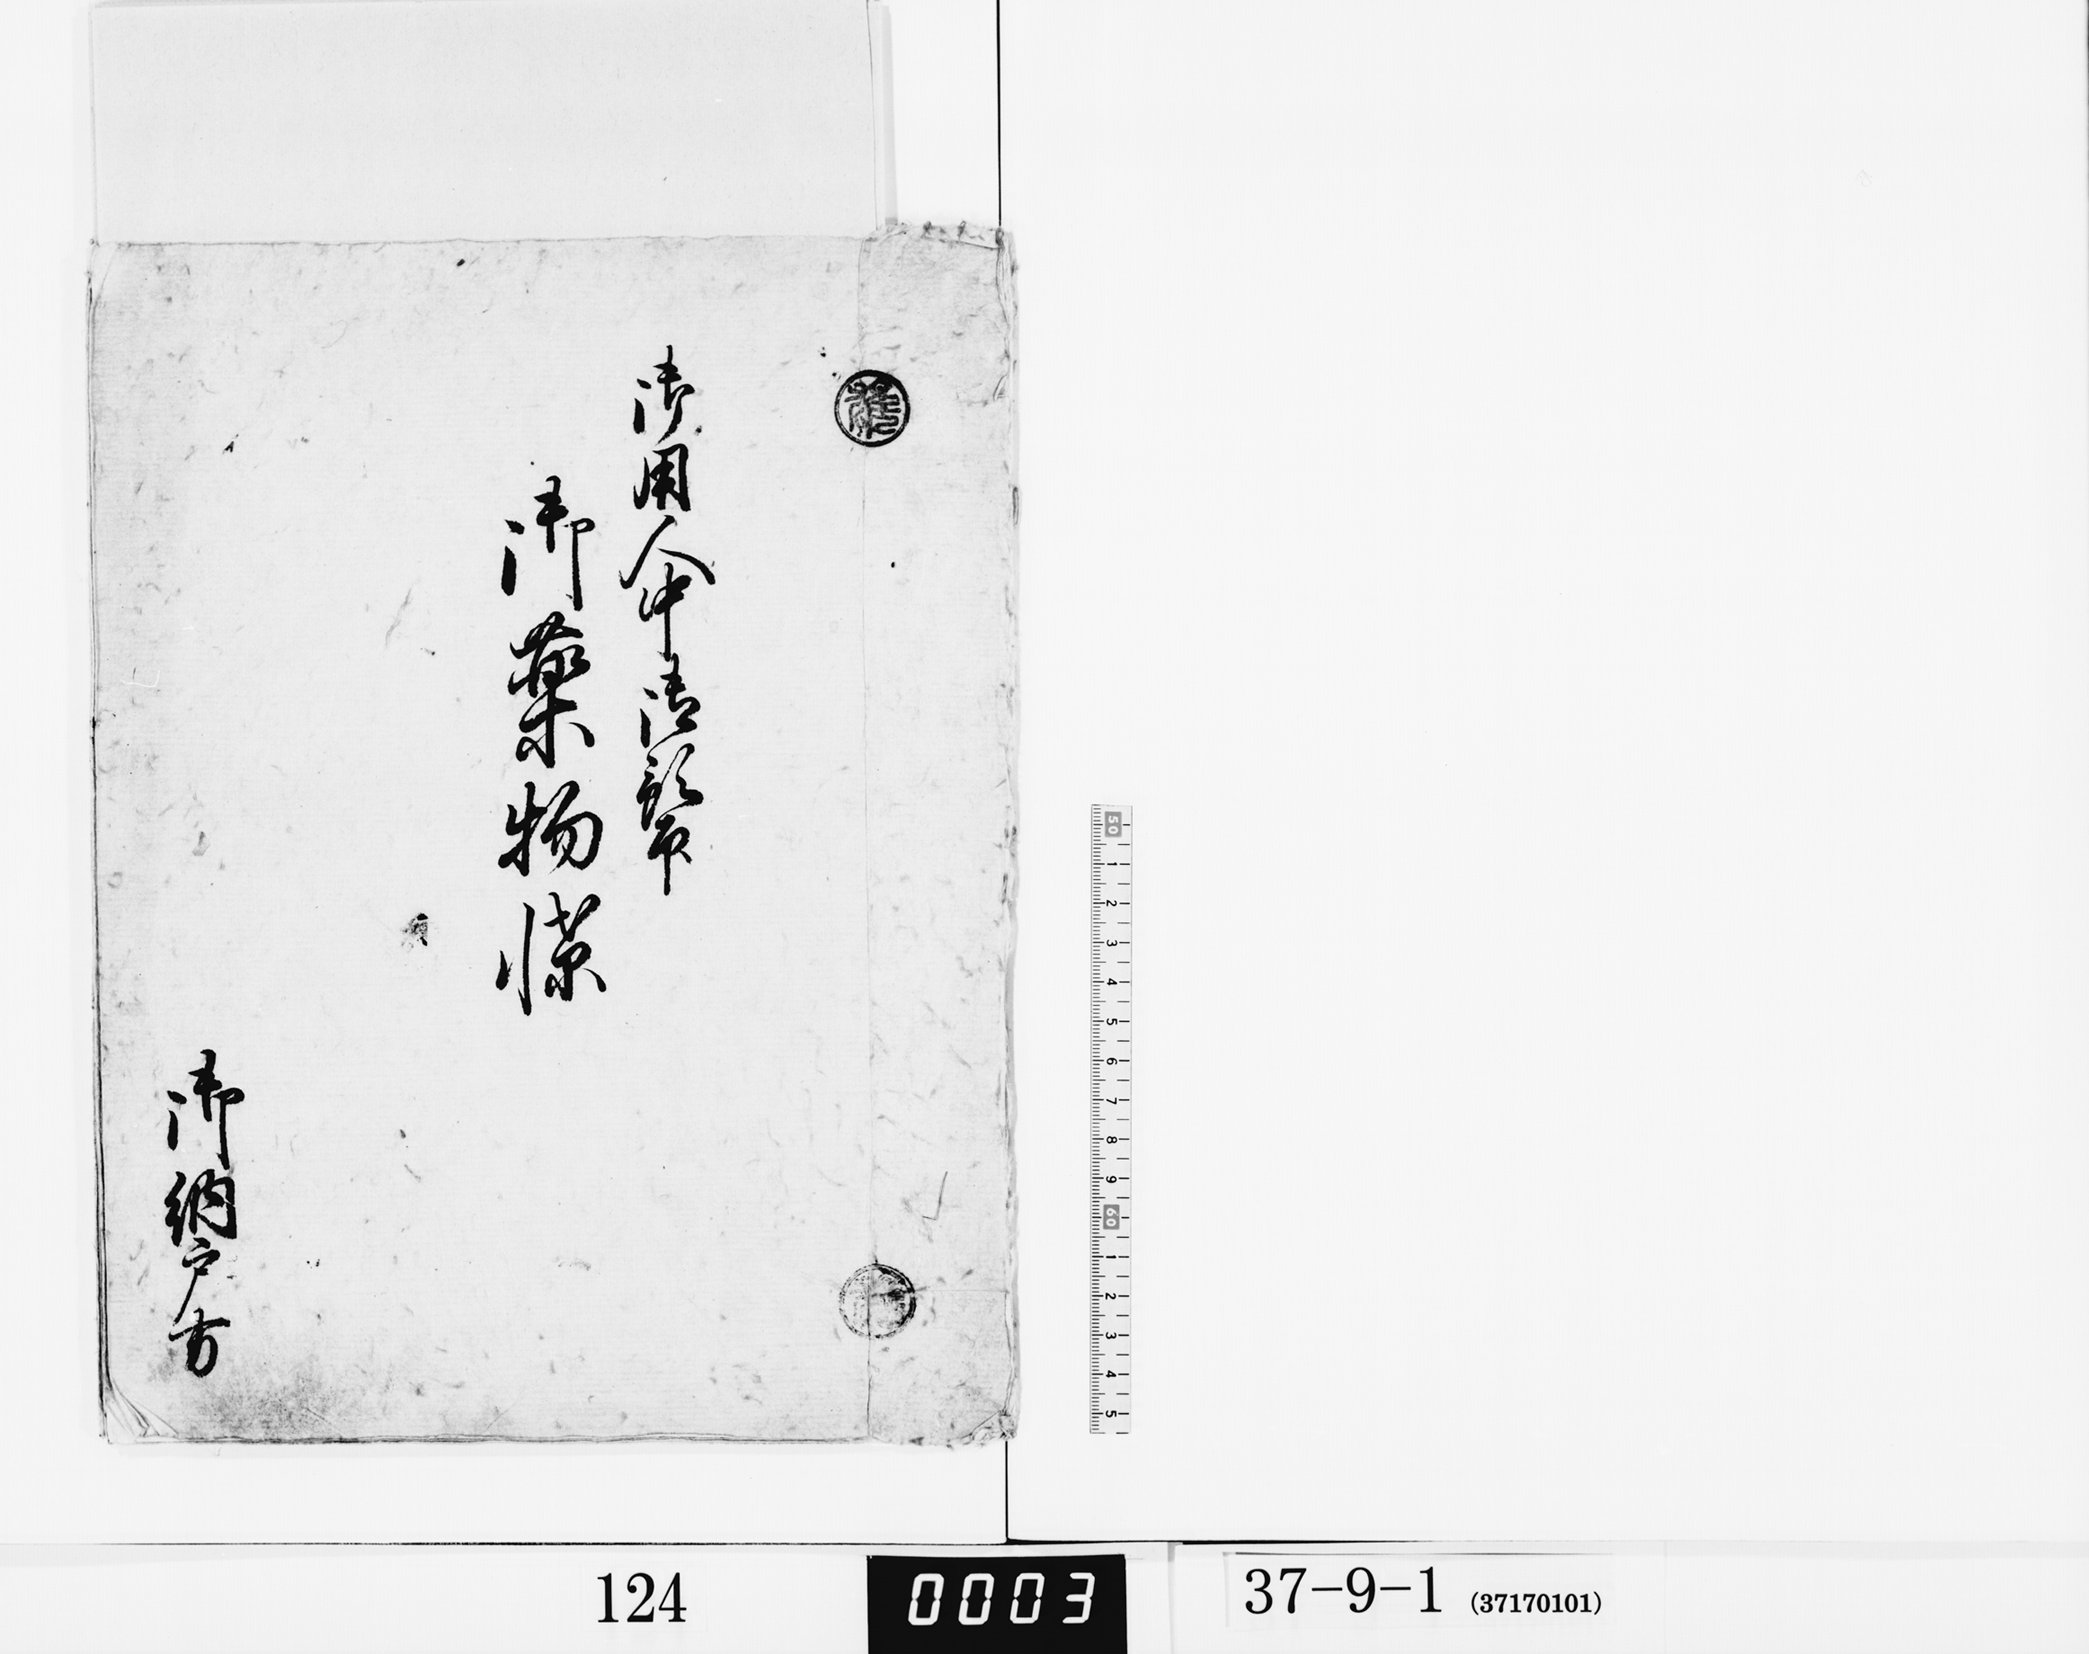 御用人中御預
御薬物
御納戸方
50
1
2
3
4
5
6
7
8
9
60
1
2
3
4
5
124
0003
37-9-1 (37170101)